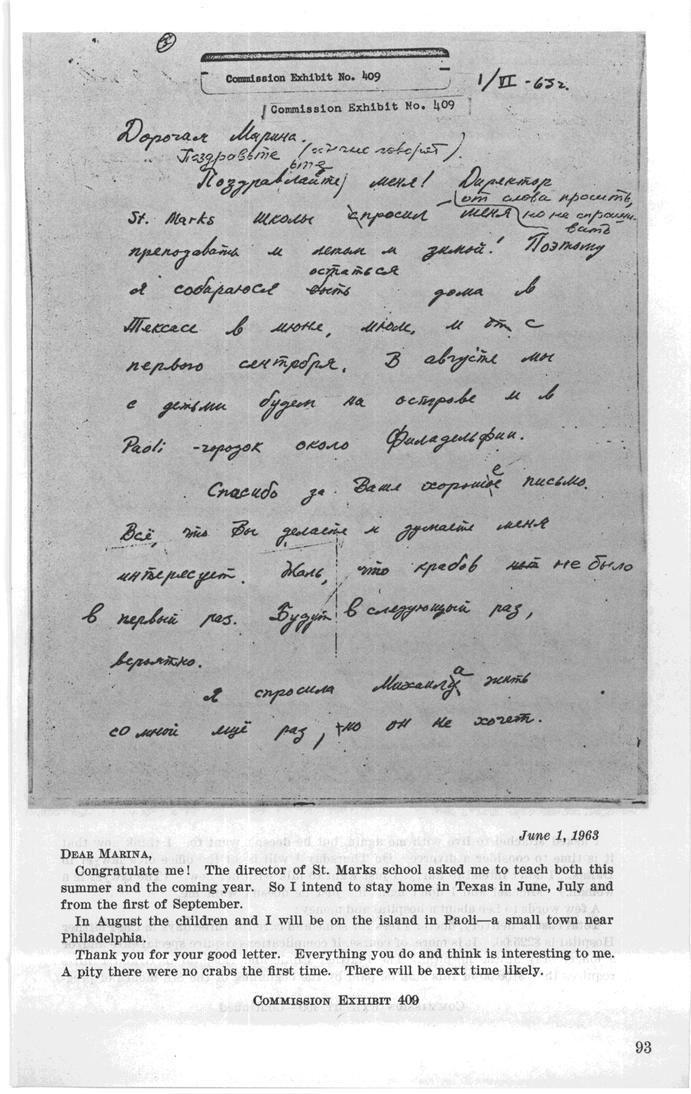 Commission Exhibit No. 409
1/VI-63г.
Commission Exhibit No. 409
Дорогая Марина.
Поздравьте
Поздравляйте меня! Директор
от слова просить,
St. Marks школы спросил меня но не спраши-
вать
преподавать и летом и зимой! Поэтому
остаться
я собираюся быть дома в
Тексасе в июне, июле, и от с
первого сентрбря. В августе мы
с детьми будем на острове и в
Paoli - городок около Филадельфии.
Спасибо за Ваше хорошее письмо.
Всё, что Вы делаете и думаете меня
интересует. Жаль, что крабов нет не было
в первый раз. Будут в следующий раз,
вероятно.
Я спросила Михаила жить
со мной ещё раз, но он не хочет.
June 1, 1963
DEAR MARINA,
Congratulate me! The director of St. Marks school asked me to teach both this
summer and the coming year. So I intend to stay home in Texas in June, July and
from the first of September.
In August the children and I will be on the island in Paoli—a small town near
Philadelphia.
Thank you for your good letter. Everything you do and think is interesting to me.
A pity there were no crabs the first time. There will be next time likely.
COMMISSION EXHIBIT 409
93